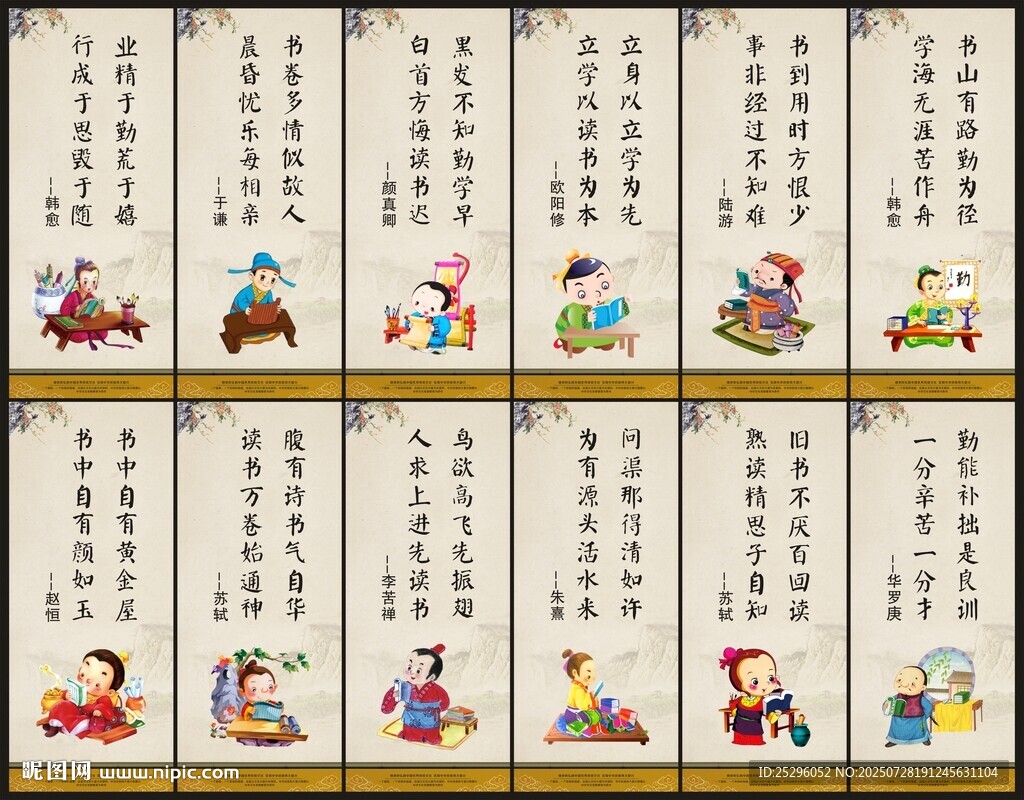 业精于勤荒于嬉
行成于思毁于随
——韩愈
书卷多情似故人
晨昏忧乐每相亲
——于谦
黑发不知勤学早
白首方悔读书迟
——颜真卿
立身以立学为先
立学以读书为本
——欧阳修
书到用时方恨少
事非经过不知难
——陆游
书山有路勤为径
学海无涯苦作舟
——韩愈
勤
书中自有黄金屋
书中自有颜如玉
——赵恒
腹有诗书气自华
读书万卷始通神
——苏轼
鸟欲高飞先振翅
人求上进先读书
——李苦禅
问渠那得清如许
为有源头活水来
——朱熹
旧书不厌百回读
熟读精思子自知
——苏轼
勤能补拙是良训
一分辛苦一分才
——华罗庚
昵图网 www.nipic.com
ID:25296052 NO:20250728191245631104